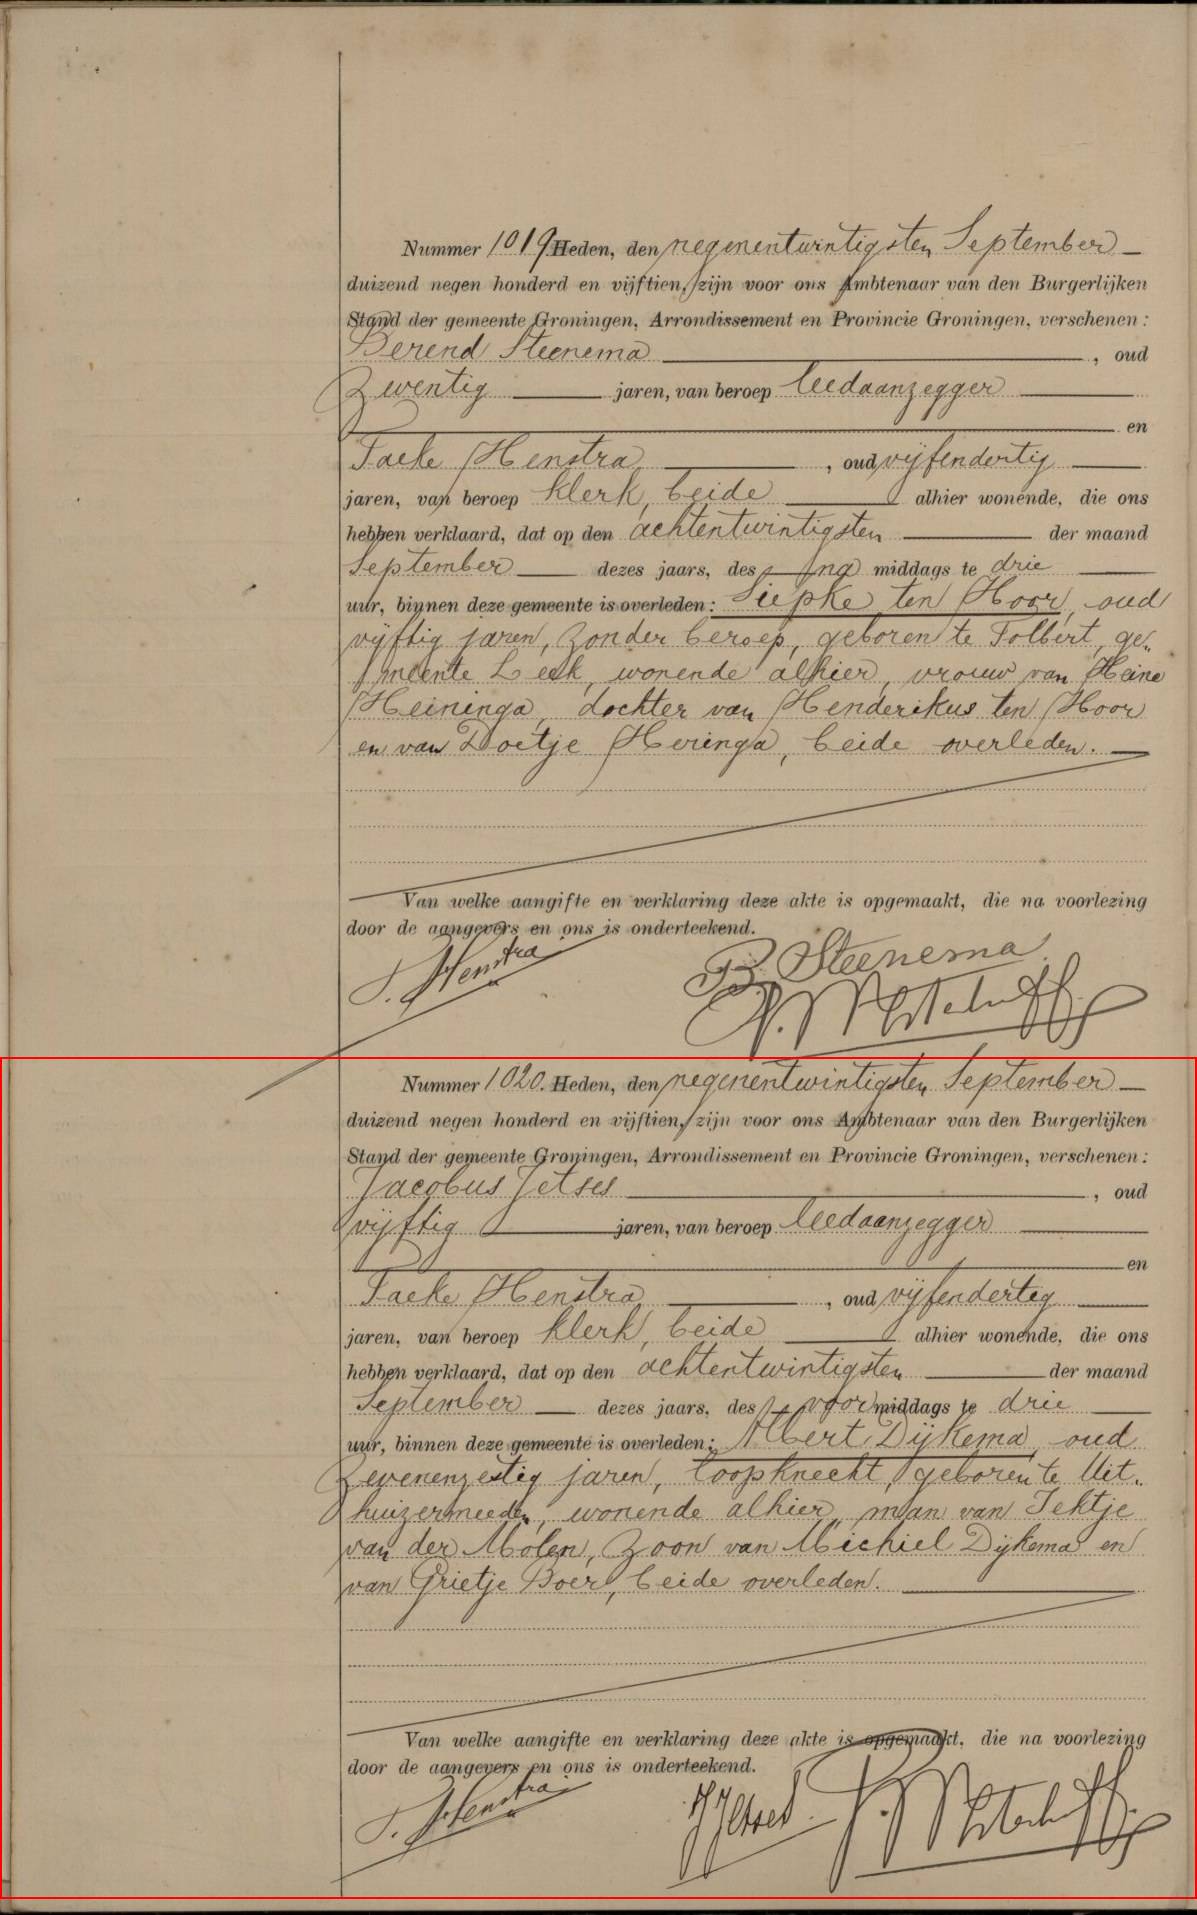 Nummer 1019. Heden, den negenentwintigsten September
duizend negen honderd en vijftien, zijn voor ons Ambtenaar van den Burgerlijken
Stand der gemeente Groningen, Arrondissement en Provincie Groningen, verschenen:
Berend Steenema, oud
Zventig jaren, van beroep leedaanzegger
en
Taeke Henstra, oud vijfendertig
jaren, van beroep klerk, beide alhier wonende, die ons
hebben verklaard, dat op den achtentwintigsten der maand
September dezes jaars, des na middags te drie
uur, binnen deze gemeente is overleden: Siepke ten Hoor, oud
vijftig jaren, zonder beroep, geboren te Tolbert, ge„
meente Leek, wonende alhier, vrouw van Heine
Heininga, dochter van Henderikus ten Hoor
en van Doetje Heringa, beide overleden.
Van welke aangifte en verklaring deze akte is opgemaakt, die na voorlezing
door de aangevers en ons is onderteekend.
T. Henstra
B. Steenema
Nummer 1020. Heden, den negenentwintigsten September
duizend negen honderd en vijftien, zijn voor ons Ambtenaar van den Burgerlijken
Stand der gemeente Groningen, Arrondissement en Provincie Groningen, verschenen:
Jacobus Jetses, oud
vijftig jaren, van beroep leedaanzegger
en
Taeke Henstra, oud vijfenderteg
jaren, van beroep klerk, beide alhier wonende, die ons
hebben verklaard, dat op den achtentwintigsten der maand
September dezes jaars, des voormiddags te drie
uur, binnen deze gemeente is overleden: Albert Dijkema, oud
zevenenzestig jaren, loopknecht, geboren te Uit„
huizermeeden, wonende alhier, man van Tektje
van der Molen, zoon van Michiel Dijkema en
van Grietje Boer, beide overleden.
Van welke aangifte en verklaring deze akte is opgemaakt, die na voorlezing
door de aangevers en ons is onderteekend.
T. Henstra
J Jetses.